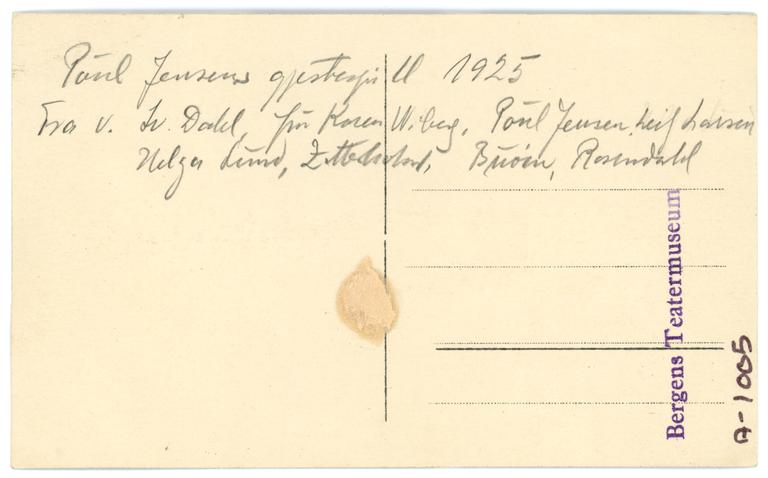 Poul Jensens gjestespill 1925
Fra v. Sv. Dahl, fru Karen Wiberg, Poul Jensen, Leif Larsen
Helge Lund, Rosendahl
Bergens Teatermuseum
A-1005